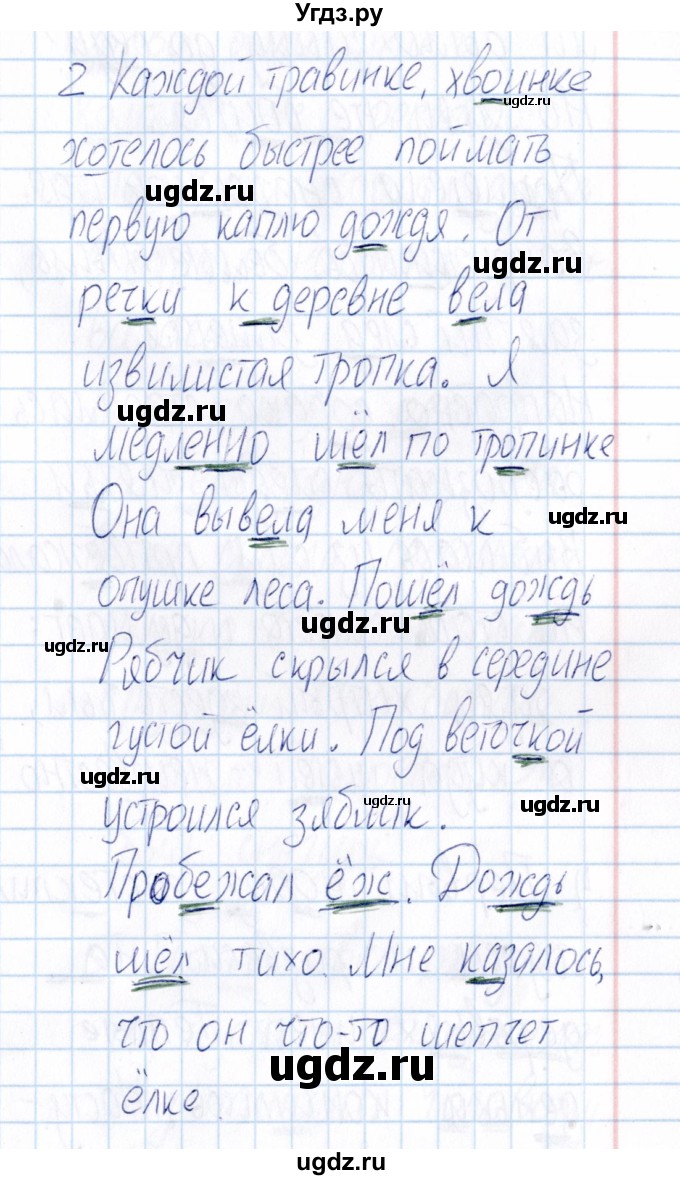 Угдз.ру
2 Каждой травинке, хвоинке
ugdz.ru
хотелось быстрее поймать
ugdz.ru
первую каплю дождя. От
ugdz.ru
речки к деревне вела
извилистая тропка. Я
ugdz.ru
медленно шёл по тропинке
Она вывела меня к
ugdz.ru
опушке леса. Пошёл дождь
ugdz.ru
ugdz.ru
Рябчик скрылся в середине
густой ёлки. Под веточкой
ugdz.ru
устроился зяблик.
ugdz.ru
ugdz.ru
Пробежал ёж. Дождь
шёл тихо. Мне казалось,
что он что-то шепчет
ugdz.ru
ёлке.
ugdz.ru